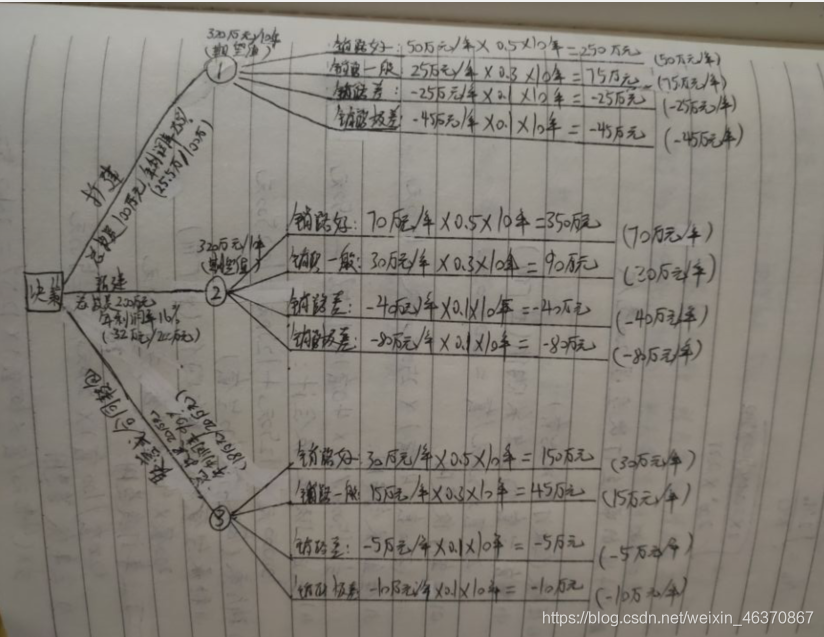 320万元/10年
(期望值)
1
销路好: 50万元/年×0.5×10年=250万元 (50万元/年)
销路一般: 25万元/年×0.3×10年=75万元 (75万元/年)
销路差: -25万元/年×0.1×10年=-25万元 (-25万元/年)
销路极差: -45万元/年×0.1×10年=-45万元 (-45万元/年)
扩建
总投资100万元
决策
新建
总投资200万元
年利润率16%
(32万元/200万元)
320万元/10年
(期望值)
2
销路好: 70万元/年×0.5×10年=350万元 (70万元/年)
销路一般: 30万元/年×0.3×10年=90万元 (30万元/年)
销路差: -40万元/年×0.1×10年=-40万元 (-40万元/年)
销路极差: -80万元/年×0.1×10年=-80万元 (-80万元/年)
合同转包
3
销路好: 30万元/年×0.5×10年=150万元 (30万元/年)
销路一般: 15万元/年×0.3×10年=45万元 (15万元/年)
销路差: -5万元/年×0.1×10年=-5万元 (-5万元/年)
销路极差: -10万元/年×0.1×10年=-10万元 (-10万元/年)
https://blog.csdn.net/weixin_46370867